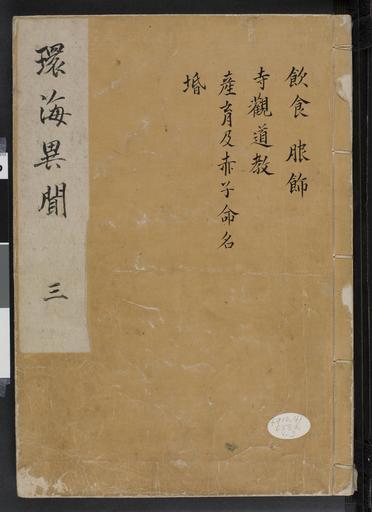 環海異聞 三
飲食 服飾
寺觀道教
産育及赤子命名
婚